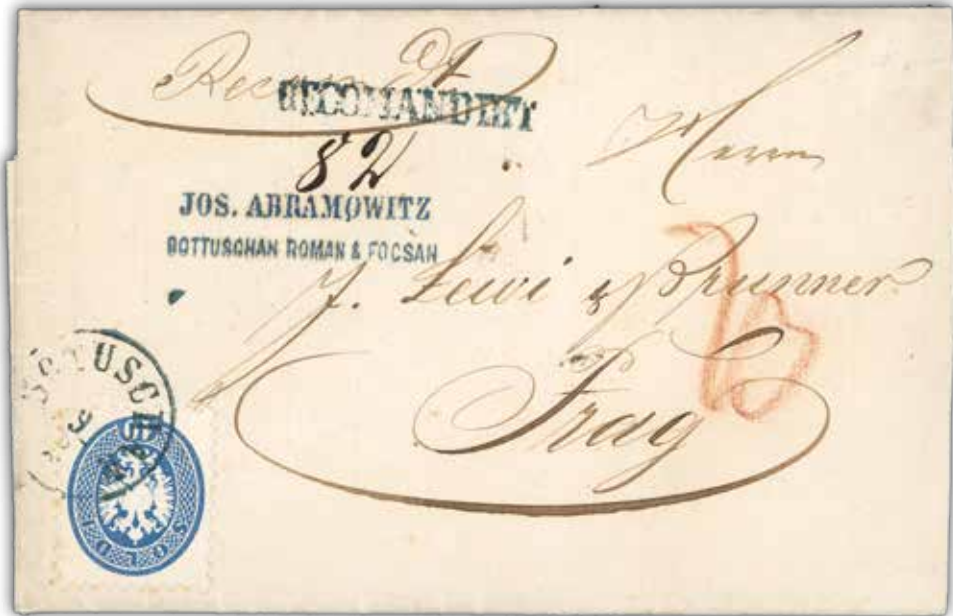 Recomdt
RECOMANDIRT
82
JOS. ABRAMOWITZ
BOTTUSCHAN ROMAN & FOCSAN
Herrn
J. Lewi & Brunner
Prag
BOTUSCHAN
10
SOLDI